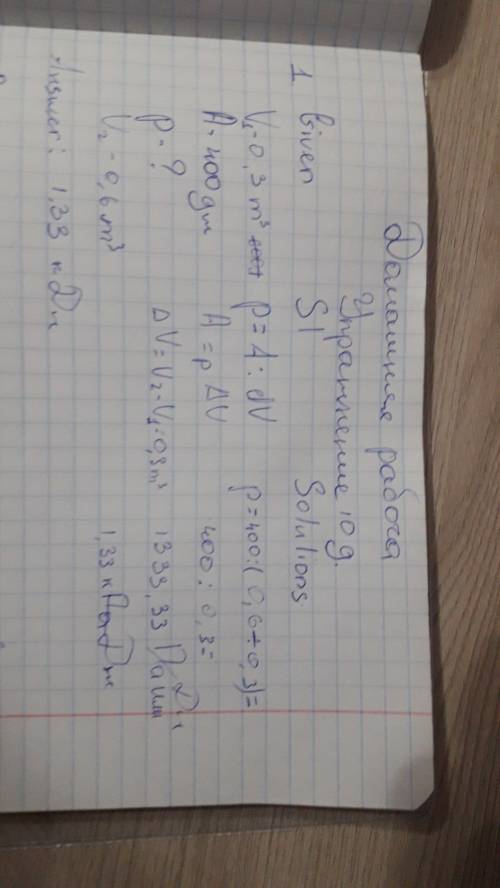 Домашняя работа
Упражнение 10 g.
1 Given SI Solutions
V₁ - 0,3 m³ p = A : dV p = 400 : (0,6 ÷ 0,3) =
A - 400 дж A = p ΔV 400 : 0,3 =
P - ? ΔV = V₂ - V₁ = 0,3 m³ 1333,33 Па или
V₂ - 0,6 m³ 1,33 к
Answer: 1,33 к Дж